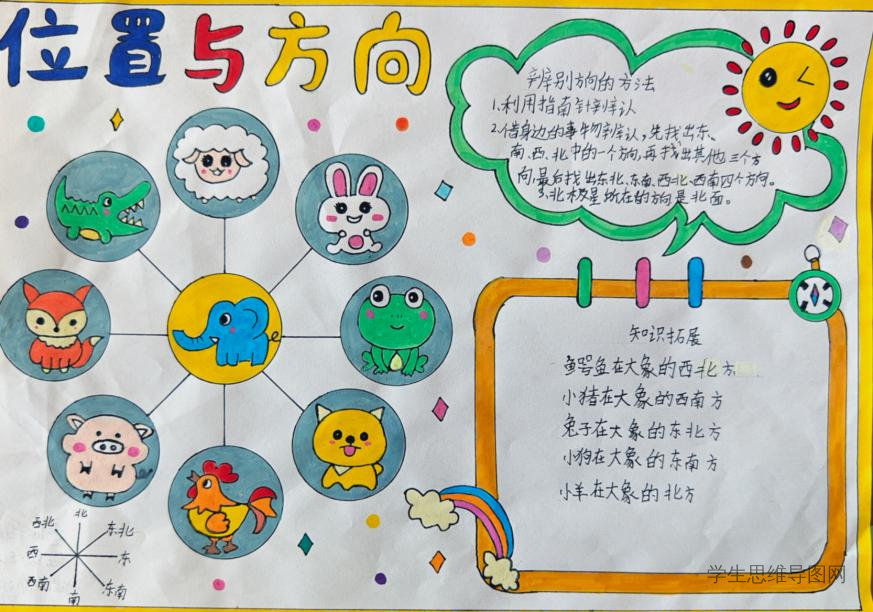 位置与方向
辨别方向的方法
1.利用指南针辨认
2.借身边的事物辨认,先找出东、
南、西、北中的一个方向,再找出其他三个方
向,最后找出东北、东南、西北、西南四个方向。
3.北极星所在的方向是北面。
知识拓展
鳄鱼在大象的西北方
小猪在大象的西南方
兔子在大象的东北方
小狗在大象的东南方
小羊在大象的北方
北
西北
东北
西
东
西南
东南
南
学生思维导图网